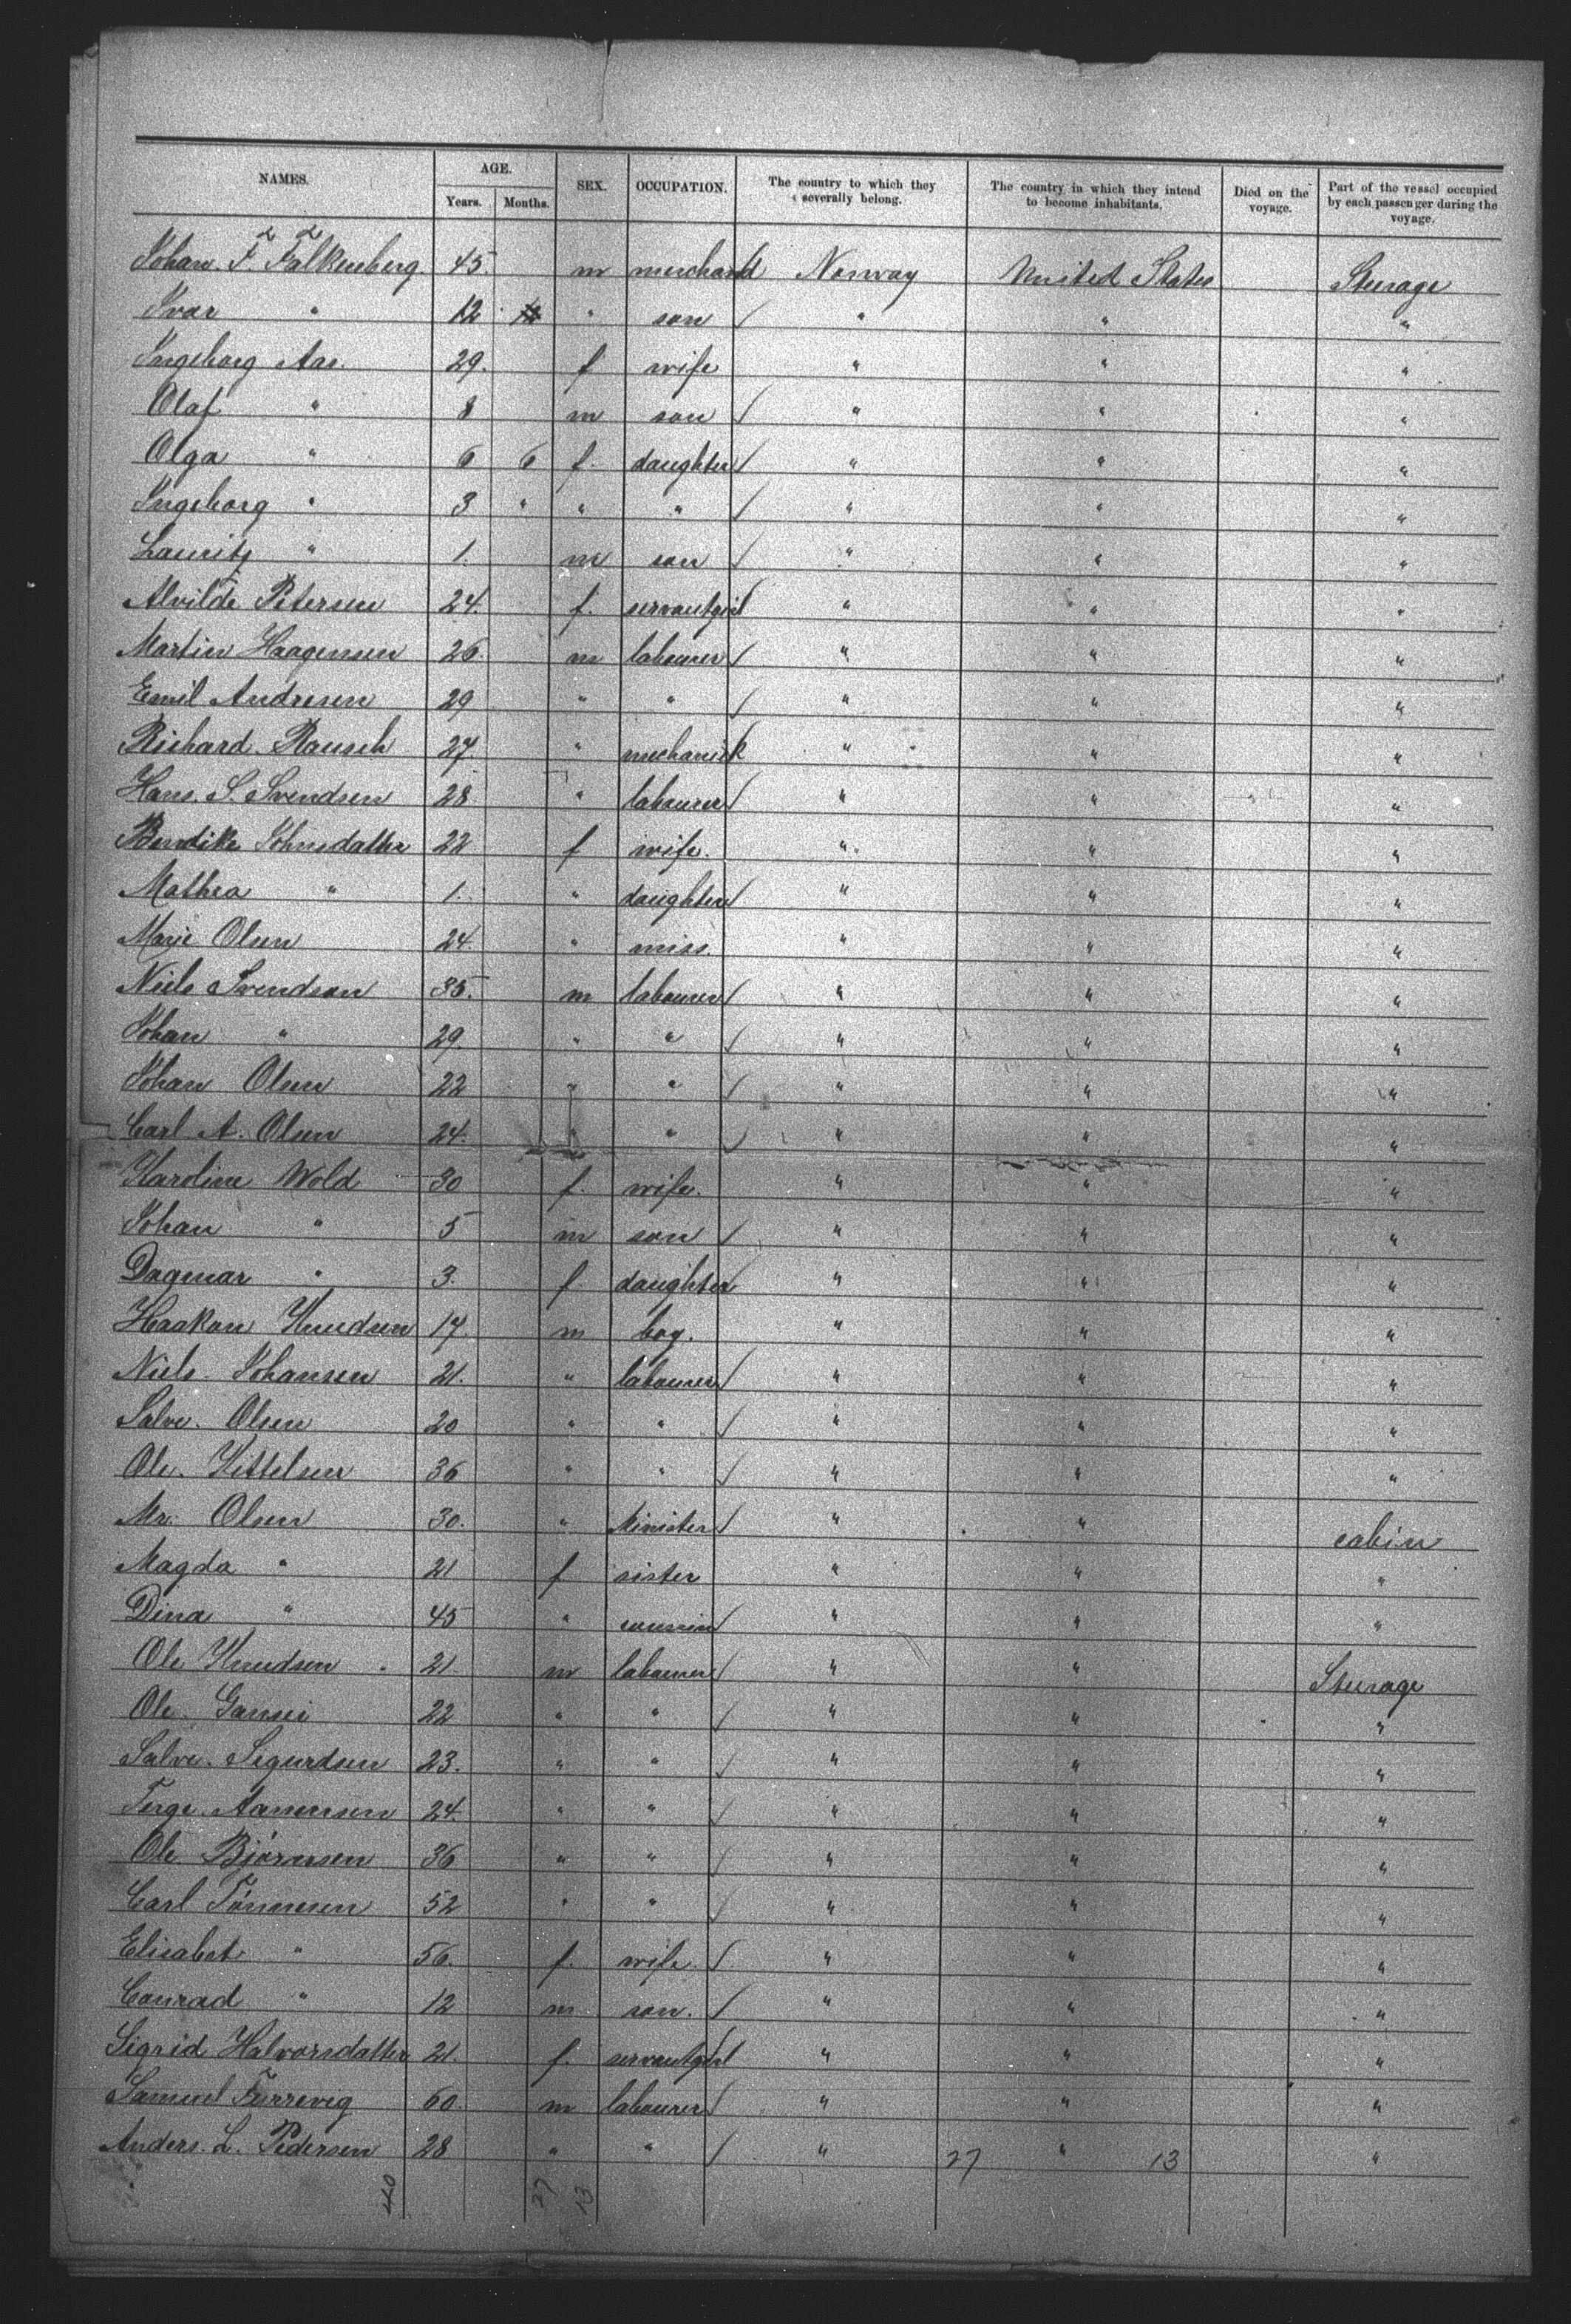 NAMES. AGE. SEX. OCCUPATION. The country to which they severally belong. The country in which they intend to become inhabitants. Died on the voyage. Part of the vessel occupied by each passenger during the voyage.
Years. Months.
Johan. F. Falkenberg 45. m merchant Norway United States Steurage
Ivar " 12 " son " " "
Ingeborg Aas. 29. f wife " " "
Olaf " 8 m son " " "
Olga " 6 6 f. daughter " " "
Ingeborg " 3 " " " " " "
Lauritz " 1. m son " " "
Alvilde Petersen 24. f. servantgirl " " "
Martin Haagensen 26. m labourer " " "
Emil Andresen 29 " " " " "
Richard. Rausch 27. " mechanick " " "
Hans. S. Svendsen 28 " labourer " " "
Bendike Johnsdatter 22 f wife. " " "
Mathea " 1. " daughter " " "
Marie Olsen 24. " miss. " " "
Niels Svendson 35. m labourer " " "
Johan " 29. " " " " "
Johan Olsen 22 " " " " "
Carl A. Olsen 24. " " " " "
Karoline Wold 30 f. wife. " " "
Johan " 5 m son " " "
Dagmar " 3. f daughter " " "
Haakon Knudsen 17. m boy. " " "
Niels. Johansen 21. " labourer " " "
Salve. Olsen 20 " " " " "
Ole. Kittelsen 36 " " " " "
Mr. Olsen 30. " Minister " " cabin
Magda " 21 f sister " " "
Dina " 45 " cousin " " "
Ole Knudsen 21 m labourer " " Steurage
Ole. 22 " " " " "
Salve. Sigurdsen 23. " " " " "
Terge. Aanensen 24. " " " " "
Ole Bjørnsen 36 " " " " "
Carl Tønnesen 52 " " " " "
Elisabet " 56. f. wife. " " "
Conrad " 12 m son. " " "
Sigrid Halvorsdatter 21. f. servantgirl " " "
Samuel 60. m labourer " " "
Anders. L. Pedersen 28 " " " 27 " 13 "
40 27 13